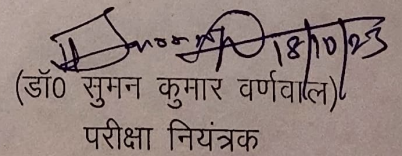 18/10/23
(डॉ0 सुमन कुमार वर्णवाल)
परीक्षा नियंत्रक